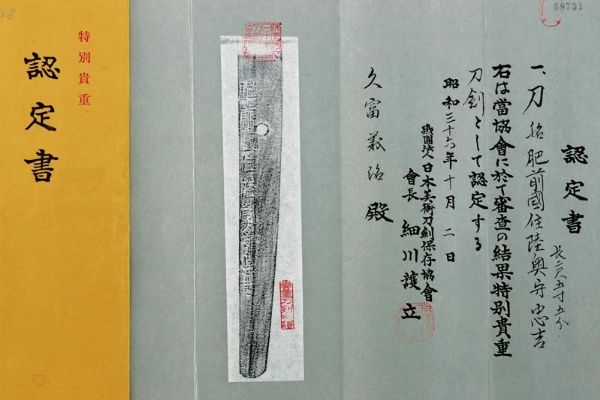 58731
認定書
一、刀 銘 肥前國住陸奥守忠吉
長二尺五寸五分
右は當協會に於て審査の結果特別貴重
刀剣として認定する
昭和三十六年十月二日
財團法人日本美術刀剣保存協會
會長 細川護立
久富 殿
特別貴重
認定書